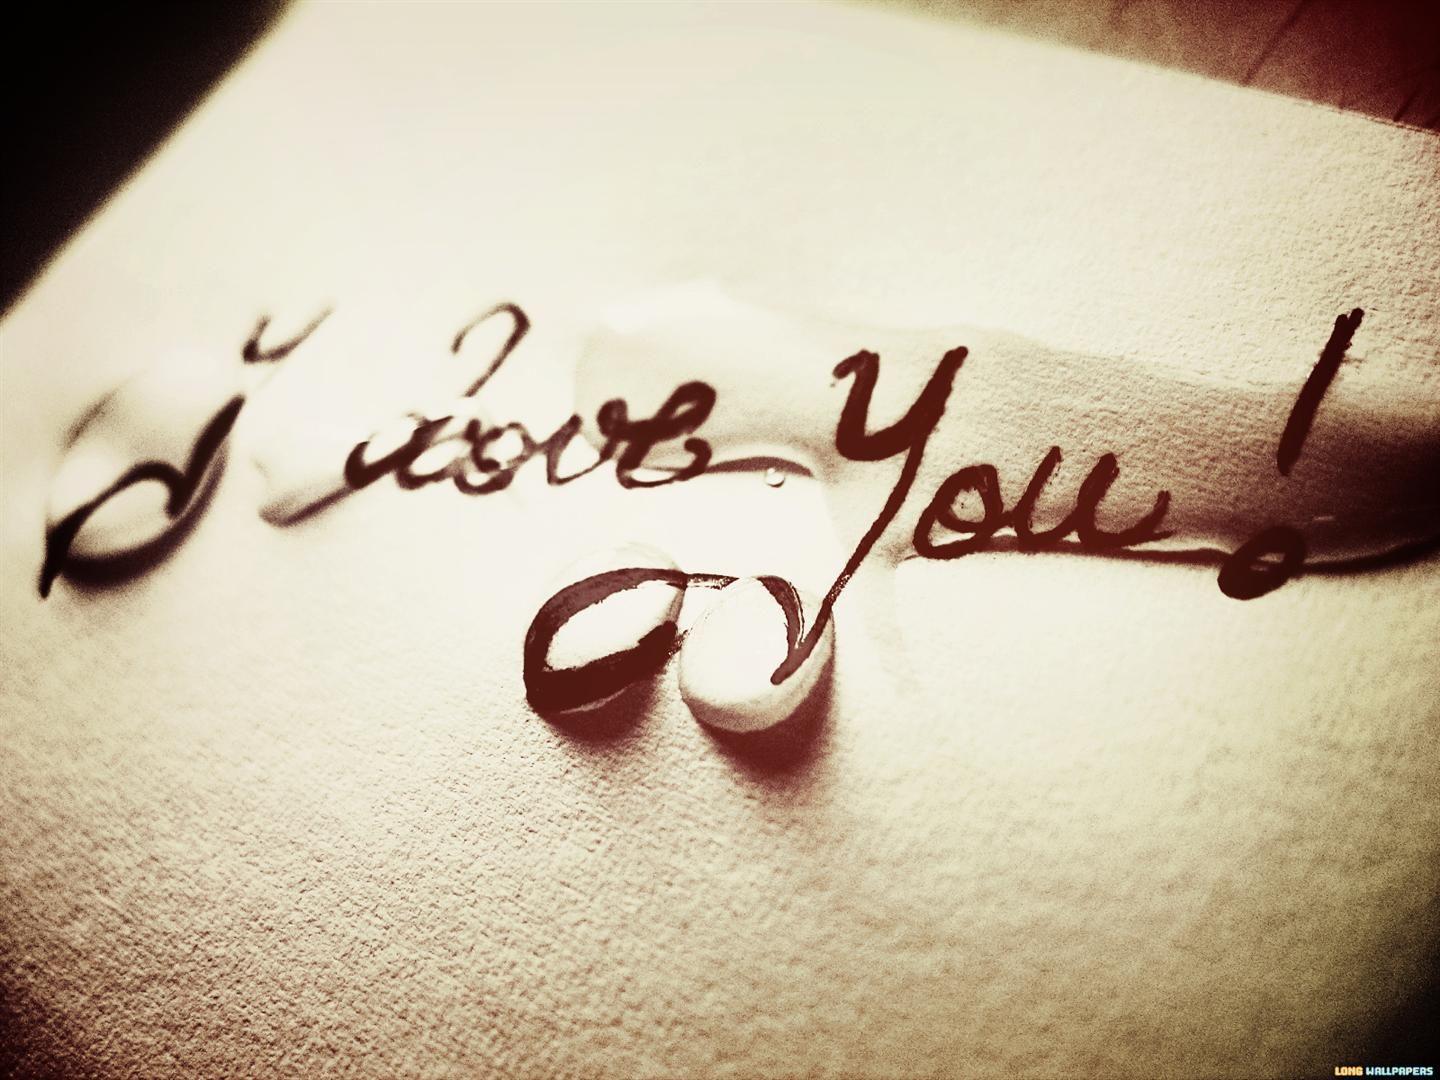 I love you!
LONG WALLPAPERS